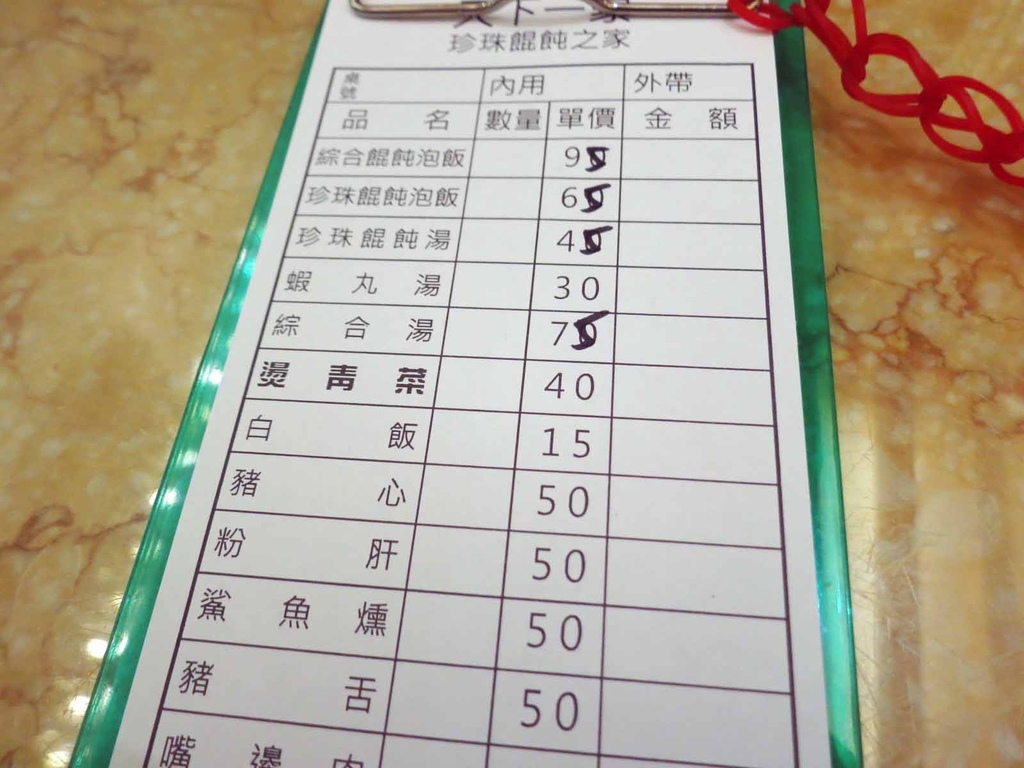 天下一家
珍珠餛飩之家
桌號 內用 外帶
品名 數量 單價 金額
綜合餛飩泡飯 95
珍珠餛飩泡飯 65
珍珠餛飩湯 45
蝦丸湯 30
綜合湯 75
燙青菜 40
白飯 15
豬心 50
粉肝 50
鯊魚燻 50
豬舌 50
嘴邊肉